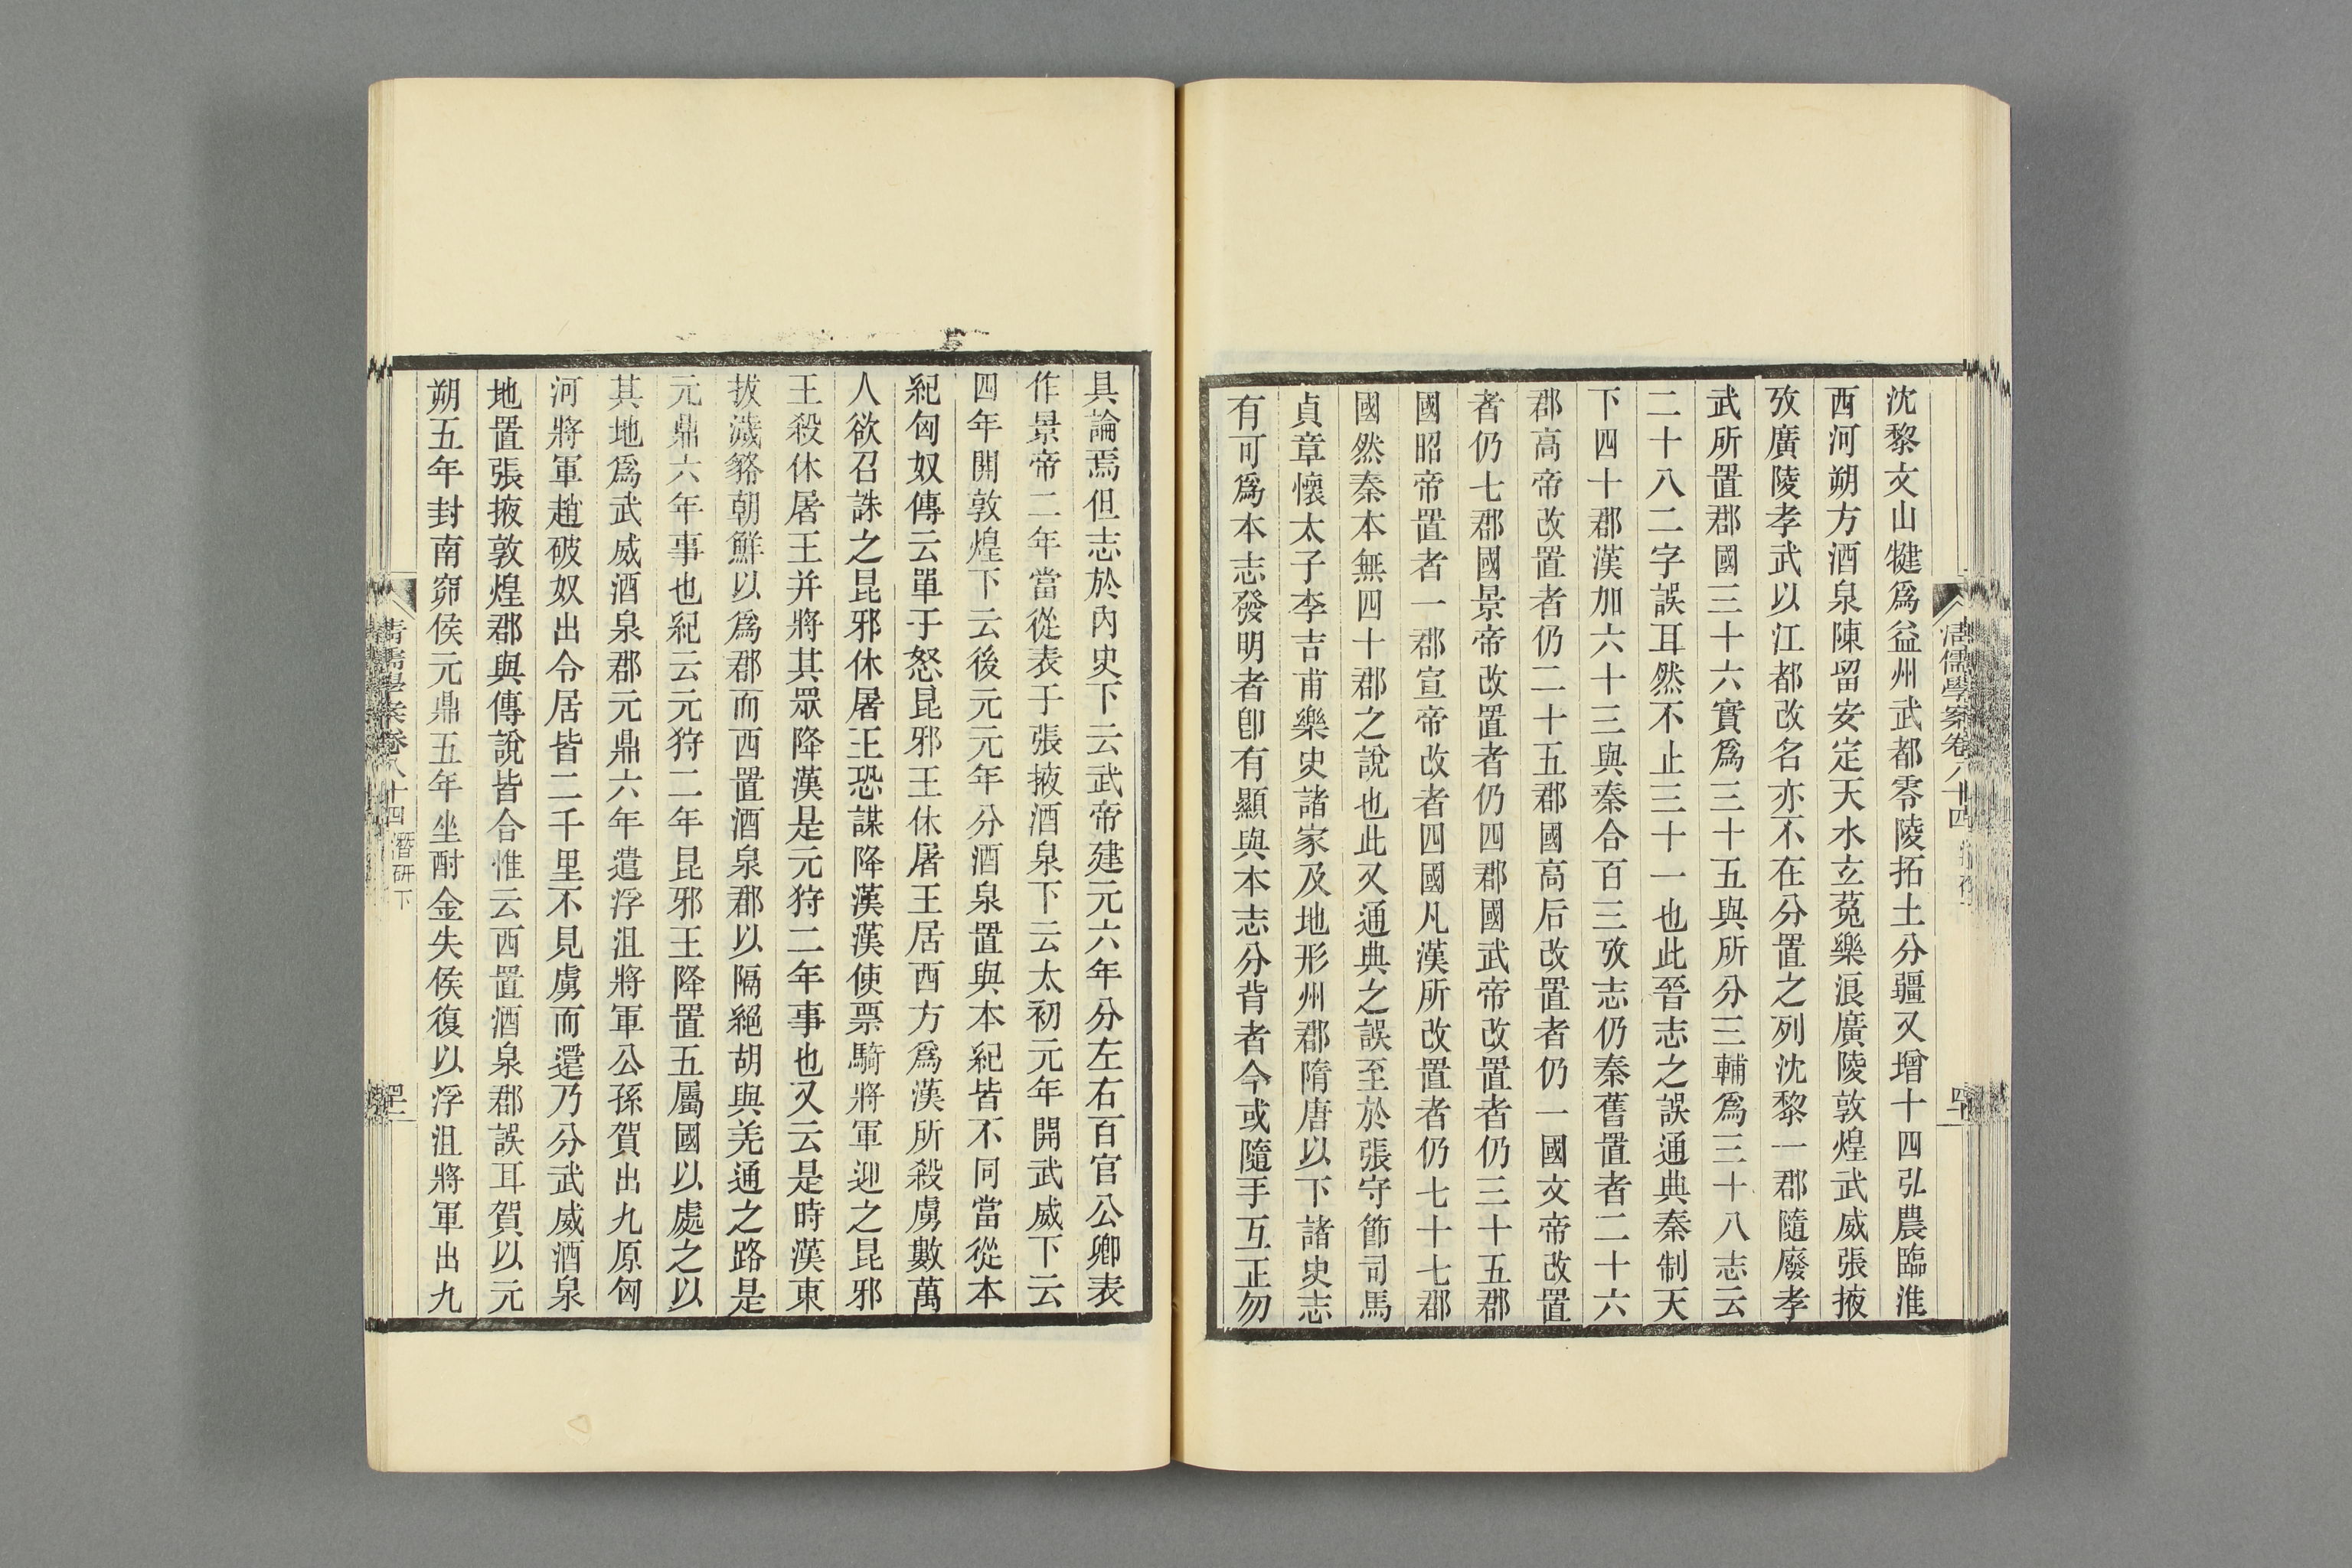 沈黎文山犍爲益州武都零陵拓土分疆又增十四弘農臨淮
西河朔方酒泉陳留安定天水玄菟樂浪廣陵敦煌武威張掖
攷廣陵孝武以江都改名亦不在分置之列沈黎一郡隨廢孝
武所置郡國三十六實爲三十五與所分三輔爲三十八志云
二十八二字誤耳然不止三十一也此晉志之誤通典秦制天
下四十郡漢加六十三與秦合百三攷志仍秦舊置者二十六
郡高帝改置者仍二十五郡國高后改置者仍一國文帝改置
者仍七郡國景帝改置者仍四郡國武帝改置者仍三十五郡
國昭帝置者一郡宣帝改者四國凡漢所改置者仍七十七郡
國然秦本無四十郡之說也此又通典之誤至於張守節司馬
貞章懷太子李吉甫樂史諸家及地形州郡隋唐以下諸史志
有可爲本志發明者卽有顯與本志分背者今或隨手互正勿
清儒學案卷八十四
具論焉但志於內史下云武帝建元六年分左右百官公卿表
作景帝二年當從表于張掖酒泉下云太初元年開武威下云
四年開敦煌下云後元元年分酒泉置與本紀皆不同當從本
紀匈奴傳云單于怒昆邪王休屠王居西方爲漢所殺虜數萬
人欲召誅之昆邪休屠王恐謀降漢漢使票騎將軍迎之昆邪
王殺休屠王并將其眾降漢是元狩二年事也又云是時漢東
拔濊貉朝鮮以爲郡而西置酒泉郡以隔絕胡與羌通之路是
元鼎六年事也紀云元狩二年昆邪王降置五屬國以處之以
其地爲武威酒泉郡元鼎六年遣浮沮將軍公孫賀出九原匈
河將軍趙破奴出令居皆二千里不見虜而還乃分武威酒泉
地置張掖敦煌郡與傳說皆合惟云西置酒泉郡誤耳賀以元
朔五年封南窌侯元鼎五年坐酎金失侯復以浮沮將軍出九
清儒學案卷八十四 潛研下